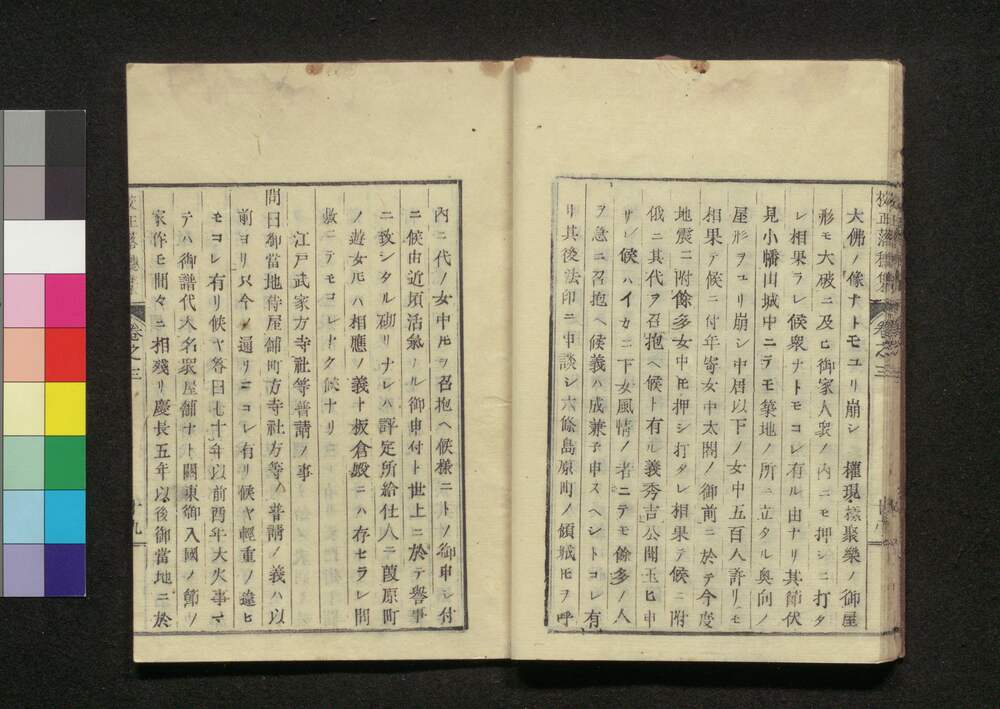 校正落穗集 卷之三
大佛ノ像ナトモユリ崩シ 權現樣聚樂ノ御屋
形モ大破ニ及ヒ御家人衆ノ内ニモ押シニ打タ
レ相果ラレ候衆ナトモコレ有ル由ナリ其節伏
見小幡山城中ニテモ築地ノ所ニ立タル奥向ノ
屋形ヲユリ崩シ中居以下ノ女中五百人許リモ
相果テ候ニ付年寄女中太閤ノ御前ニ於テ今度
地震ニ附餘多女中𪜈押シ打タレ相果テ候ニ附
俄ニ其代ヲ召抱ヘ候ト有ル義秀吉公聞玉ヒ申
サレ候ハイカニ下女風情ノ者ニテモ餘多ノ人
ヲ急ニ召抱ヘ候義ハ成兼子申スヘシトコレ有
リ其後法印ニ申談シ六條島原町ノ傾城𪜈ヲ呼
内ニ代ノ女中𪜈ヲ召抱ヘ候樣ニトノ御申シ付
ニ候由近頃活氣ナル御申付ト世上ニ於テ譽事
ニ致シタル砌リナレハ評定所給仕人ニ葭原町
ノ遊女𪜈ハ相應ノ義ト板倉殿ニハ存セラレ間
敷ニテモコレナク候ナリ
江戸武家方寺社等普請ノ事
問曰御當地侍屋舗町方寺社方等ノ普請ノ義ハ以
前ヨリ只今ノ通リニコレ有リ候ヤ輕重ノ違ヒ
モコレ有リ候ヤ答曰七十年以前酉年大火事マ
テハ御譜代大名衆屋舗ナト關東御入國ノ節ノ
家作モ間々ニ相殘リ慶長五年以後御當地ニ於
卷之三
十九